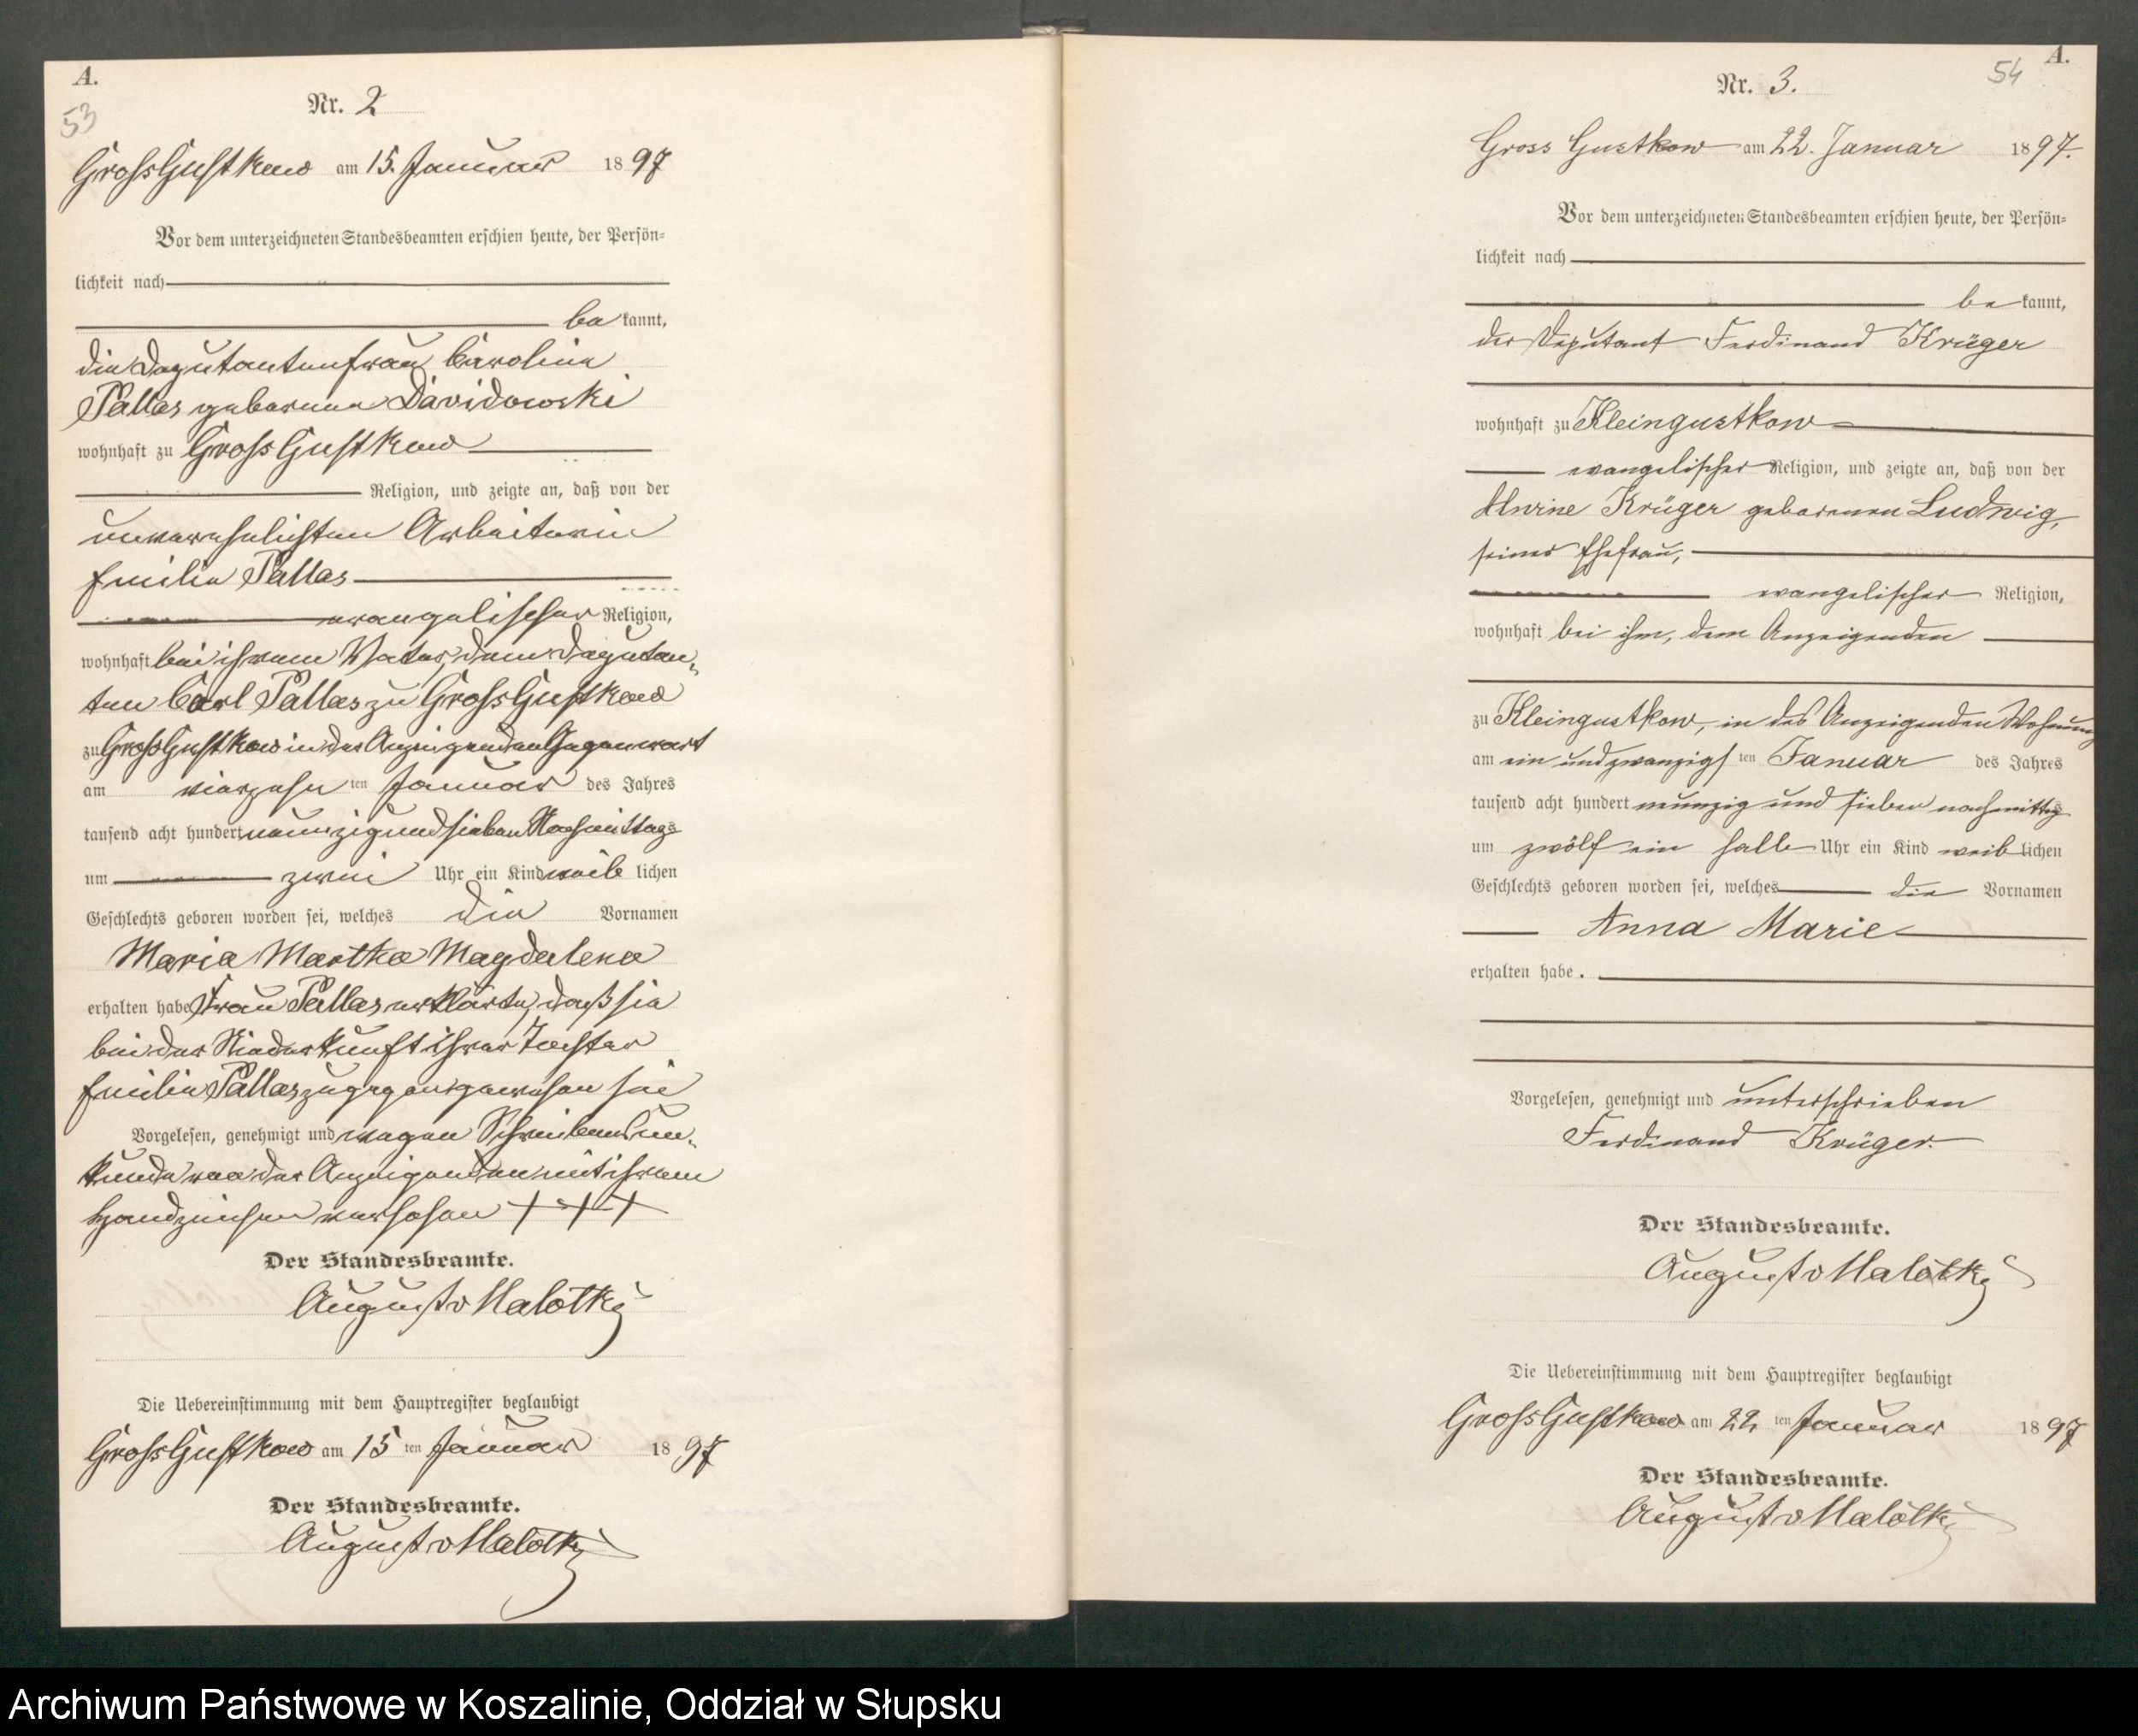 A.
53
Nr. 2
Gross Gustkow am 15. Januar 1897
Vor dem unterzeichneten Standesbeamten erschien heute, der Persön-
lichkeit nach
be kannt,
die Deputantenfrau Caroline
Pallas geborene Davidowski
wohnhaft zu Gross Gustkow
Religion, und zeigte an, daß von der
unverehelichten Arbeiterin
Emilie Pallas
evangelischer Religion,
wohnhaft bei ihrem Vater, dem Deputan-
ten Carl Pallas zu Gross Gustkow
zu Gross Gustkow in der Anzeigenden Gegenwart
am vierzehn ten Januar des Jahres
tausend acht hundert neunzig und sieben Nachmittags
um zwei Uhr ein Kind weib lichen
Geschlechts geboren worden sei, welches die Vornamen
Maria Martha Magdalena
erhalten habe Frau Pallas erklärte, daß sie
bei der Niederkunft ihrer Tochter
Emilie Pallas zugegen gewesen sei
Vorgelesen, genehmigt und wegen Schreibensun-
kunde von der Anzeigenden mit ihrem
Handzeichen versehen + + +
Der Standesbeamte.
August v Malottki
Die Uebereinstimmung mit dem Hauptregister beglaubigt
Gross Gustkow am 15 ten Januar 1897
Der Standesbeamte.
August v Malottki
A.
54
Nr. 3.
Gross Gustkow am 22. Januar 1897.
Vor dem unterzeichneten Standesbeamten erschien heute, der Persön-
lichkeit nach
be kannt,
der Deputant Ferdinand Krüger
wohnhaft zu Kleingustkow
evangelischer Religion, und zeigte an, daß von der
Krüger geborenen Ludwig,
seiner Ehefrau,
evangelischer Religion,
wohnhaft bei ihm, dem Anzeigenden
zu Kleingustkow, in des Anzeigenden Wohnung
am ein und zwanzigs ten Januar des Jahres
tausend acht hundert neunzig und sieben nachmittags
um zwölf ein halb Uhr ein Kind weib lichen
Geschlechts geboren worden sei, welches die Vornamen
Anna Marie
erhalten habe.
Vorgelesen, genehmigt und unterschrieben
Ferdinand Krüger.
Der Standesbeamte.
August v Malottki
Die Uebereinstimmung mit dem Hauptregister beglaubigt
Gross Gustkow am 22 ten Januar 1897
Der Standesbeamte.
August v Malottki
Archiwum Państwowe w Koszalinie, Oddział w Słupsku